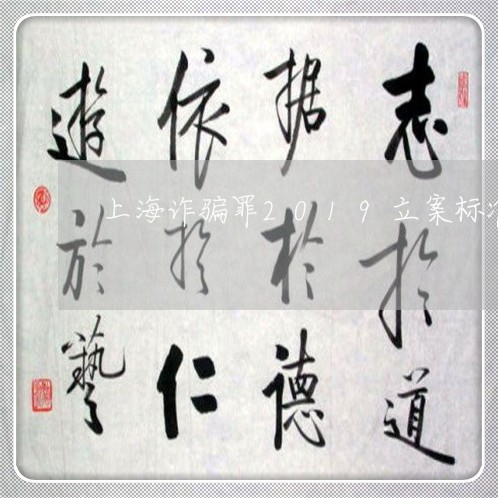 志於道
据於德
依於仁
遊於藝
上海诈骗罪2019立案标